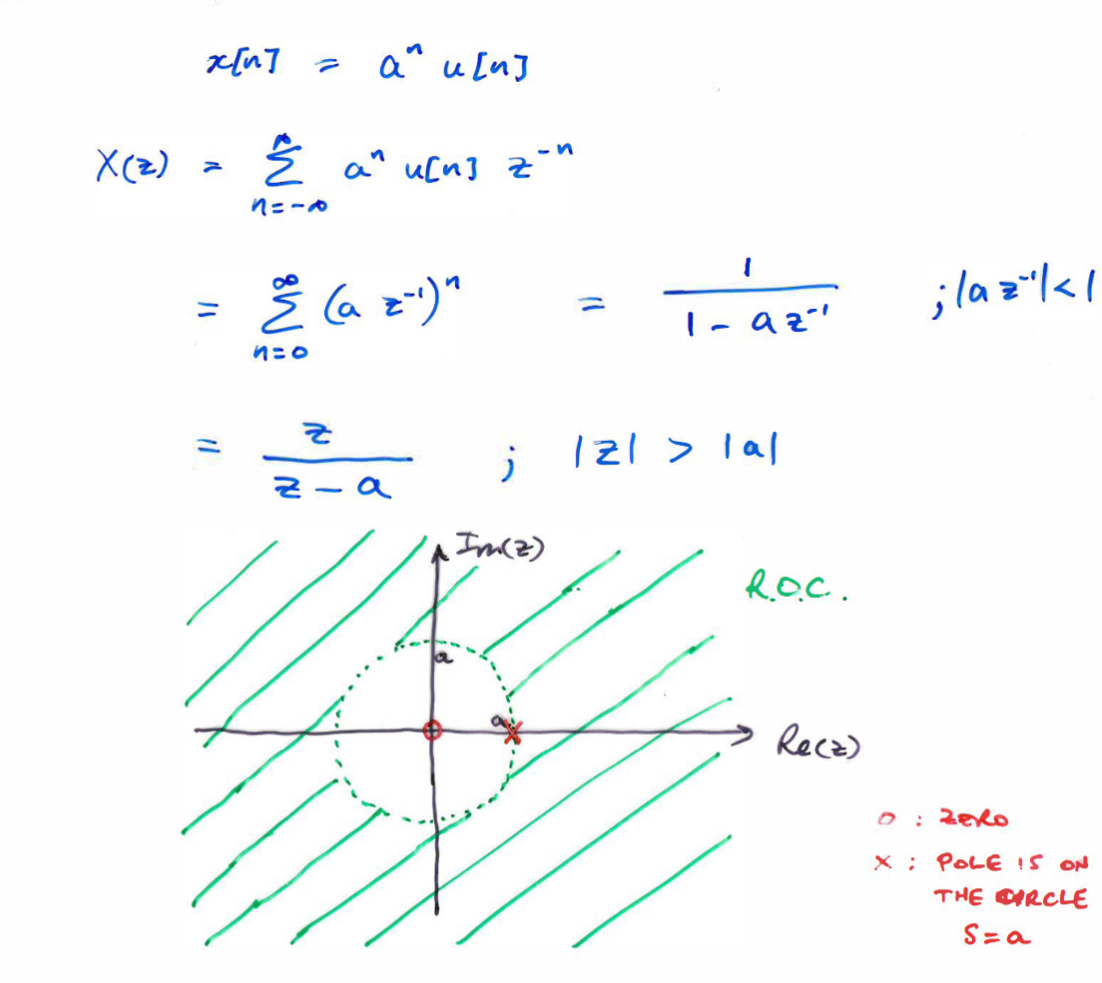 x[n] = aⁿ u[n]
X(z) = ∑ n=-∞ ∞ aⁿ u[n] z⁻ⁿ
= ∑ n=0 ∞ (a z⁻¹)ⁿ = 1 / (1 - a z⁻¹) ; |a z⁻¹| < 1
= z / (z - a) ; |z| > |a|
Im(z)
R.O.C.
a
a
Re(z)
o : ZERO
x : POLE IS ON
THE CIRCLE
S = a